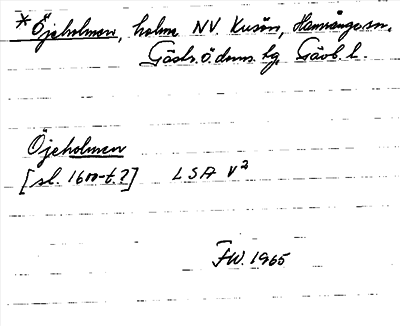 * Öjeholmen, holme NV. Kusön, Hamrånge sn,
Gästr. Ö. doms. hg Gävb. l.
Öjeholmen
[sl. 1600-t.?] LSA V2
FW. 1965